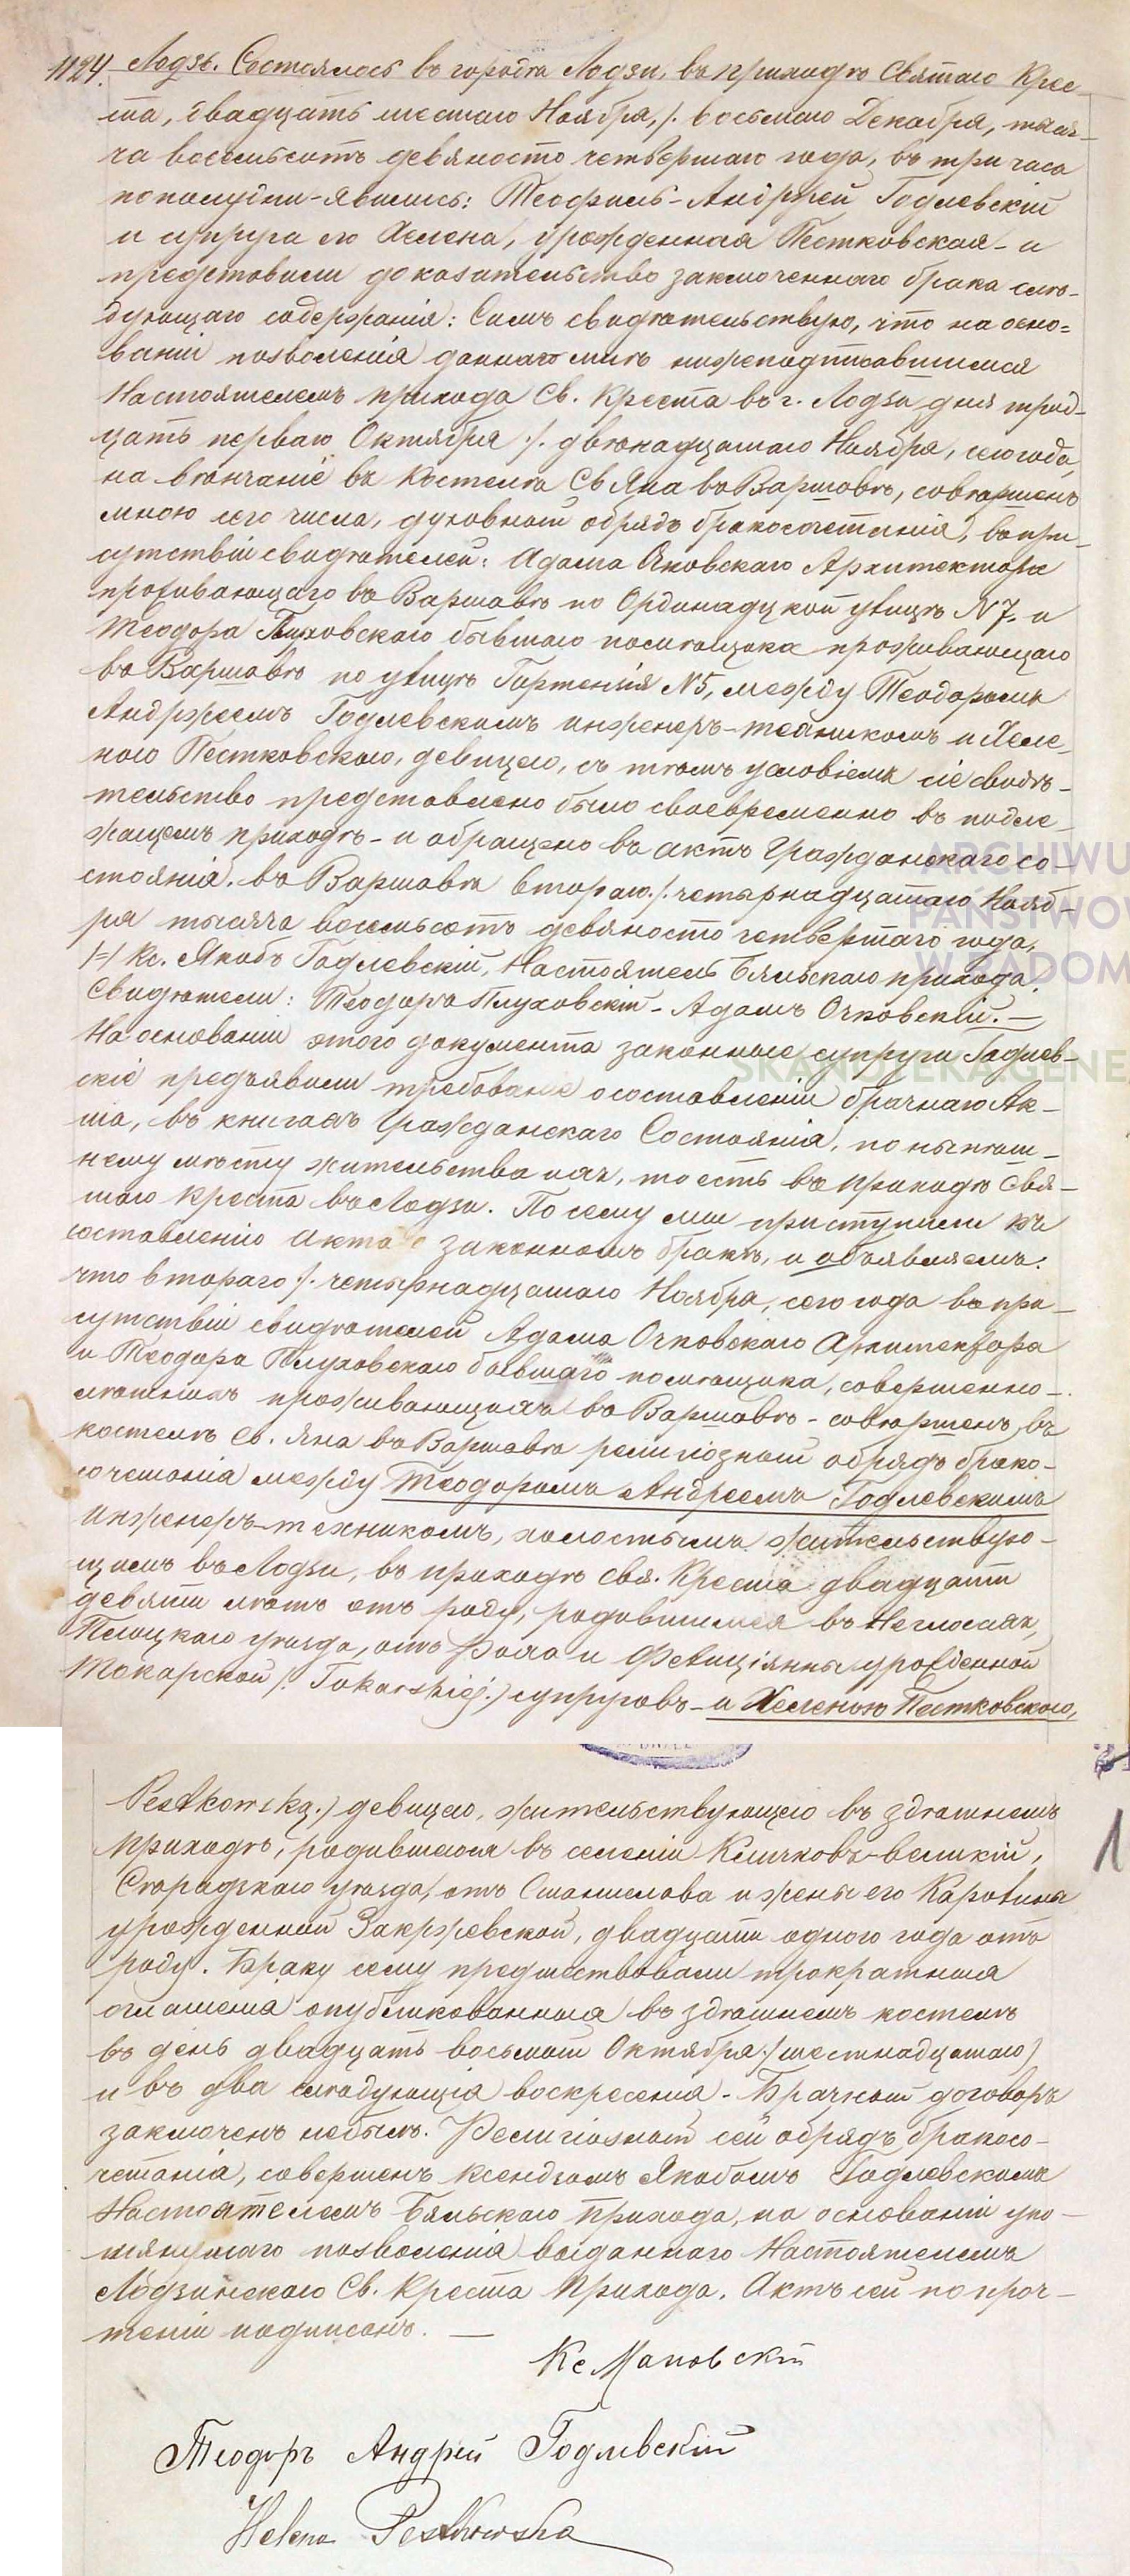 1124. Лодзь. Состоялось въ городѣ Лодзи, въ приходѣ Святаго Крес-
та, двадцать шестаго Ноября, /. восьмаго Декабря, тыся-
ча восемьсотъ девяносто четвертаго года, въ три часа
пополудни - явились: Теофиль-Андржей Годлевскій
и супруга его Хелена, урожденная Пестковская - и
представили доказательство заключеннаго брака слѣ-
дующаго содержанія: Симъ свидѣтельствую, что на осно=
ваніи позволенія даннаго мнѣ нижеподписавшимся
Настоятелемъ прихода Св. Креста въ г. Лодзи дня трид-
цать перваго Октября /. двѣнадцатаго Ноября, сего года,
на вѣнчаніе въ Костелѣ Св Яна въ Варшавѣ, совершенъ
мною сего числа, духовный обрядъ бракосочетанія, въ при-
сутствіи свидѣтелей: Адама Очковскаго Архитектора
проживающаго въ Варшавѣ по Ординацкой улицѣ N 7. и
Теодора Плуховскаго бывшаго помѣщика проживающаго
въ Варшавѣ по улицѣ Гортензія N 5, между Теодоромъ
Андржеемъ Годлевскимъ инженеръ-техникомъ и Хеле-
ною Пестковскою, девицею, съ тѣмъ условіемъ сіе свидѣ-
тельство представлено было своевременно въ надле-
жащемъ приходѣ - и обращено въ актъ Гражданскаго со-
стоянія. въ Варшавѣ втораго /. четырнадцатаго Нояб-
ря тысяча восемьсотъ девяносто четвертаго года,
/=/ Кс. Якобъ Годлевскій, Настоятель Бяльскаго прихода.
Свидѣтели: Теодоръ Плуховскій - Адамъ Очковскій. —
На основаніи этого документа законные супруги Годлев-
скіе предъявили требованіе о составленіи брачнаго Ак-
та, въ книгахъ Гражданскаго Состоянія, по нынѣш-
нему мѣсту жительства ихъ, то есть въ приходѣ Свя-
таго Креста въ Лодзи. По сему мы приступили къ
составленію акта о законномъ бракѣ, и объявляемъ:
что втораго /. четырнадцатаго Ноября, сего года въ при-
сутствіи свидѣтелей Адама Очковскаго Архитектора
и Теодора Плуховскаго бывшаго помѣщика, совершенно-
лѣтнихъ проживающихъ въ Варшавѣ - совершенъ въ
костелѣ Св. Яна въ Варшавѣ религіозный обрядъ брако-
сочетанія между Теодоромъ Андреемъ Годлевскимъ
инженеръ-техникомъ, холостымъ жительствую-
щимъ въ Лодзи, въ приходѣ Свя. Креста двадцати
девяти лѣтъ отъ роду, родившимся въ Неглосахъ,
Плоцкаго уѣзда, отъ и Фелиціянны урожденной
Токарской /. Tokarskiej ./ супруговъ - и Хеленою Пестковскою,
Pestkowską ./ девицею, жительствующею въ здѣшнемъ
приходѣ, родившеюся въ селеніи Кличковъ-великій,
Сѣрадзкаго уѣзда, отъ Станислава и жены его Каролины
урожденной Закржевской, двадцати одного года отъ
роду. Браку сему предшествовали трократныя
оглашенія опубликованныя въ здѣшнемъ костелѣ
въ день двадцать восьмый Октября / шестнадцатаго /
и въ два слѣдующія воскресенія - Брачный договоръ
заключенъ небылъ. Религіозный сей обрядъ бракосо-
четанія, совершенъ Ксендзомъ Якобомъ Годлевскимъ
Настоятелемъ Бяльскаго Прихода, на основаніи упо-
мянутаго позволенія выданнаго Настоятелемъ
Лодзинскаго Св. Креста Прихода. Актъ сей по проч-
теніи подписанъ. —
Теодоръ Андрей Годлевскій
Helena Pestkowska
ARCHIWU
PAŃSTWOW
W RADOM
SKANOTEKA.GENE
1